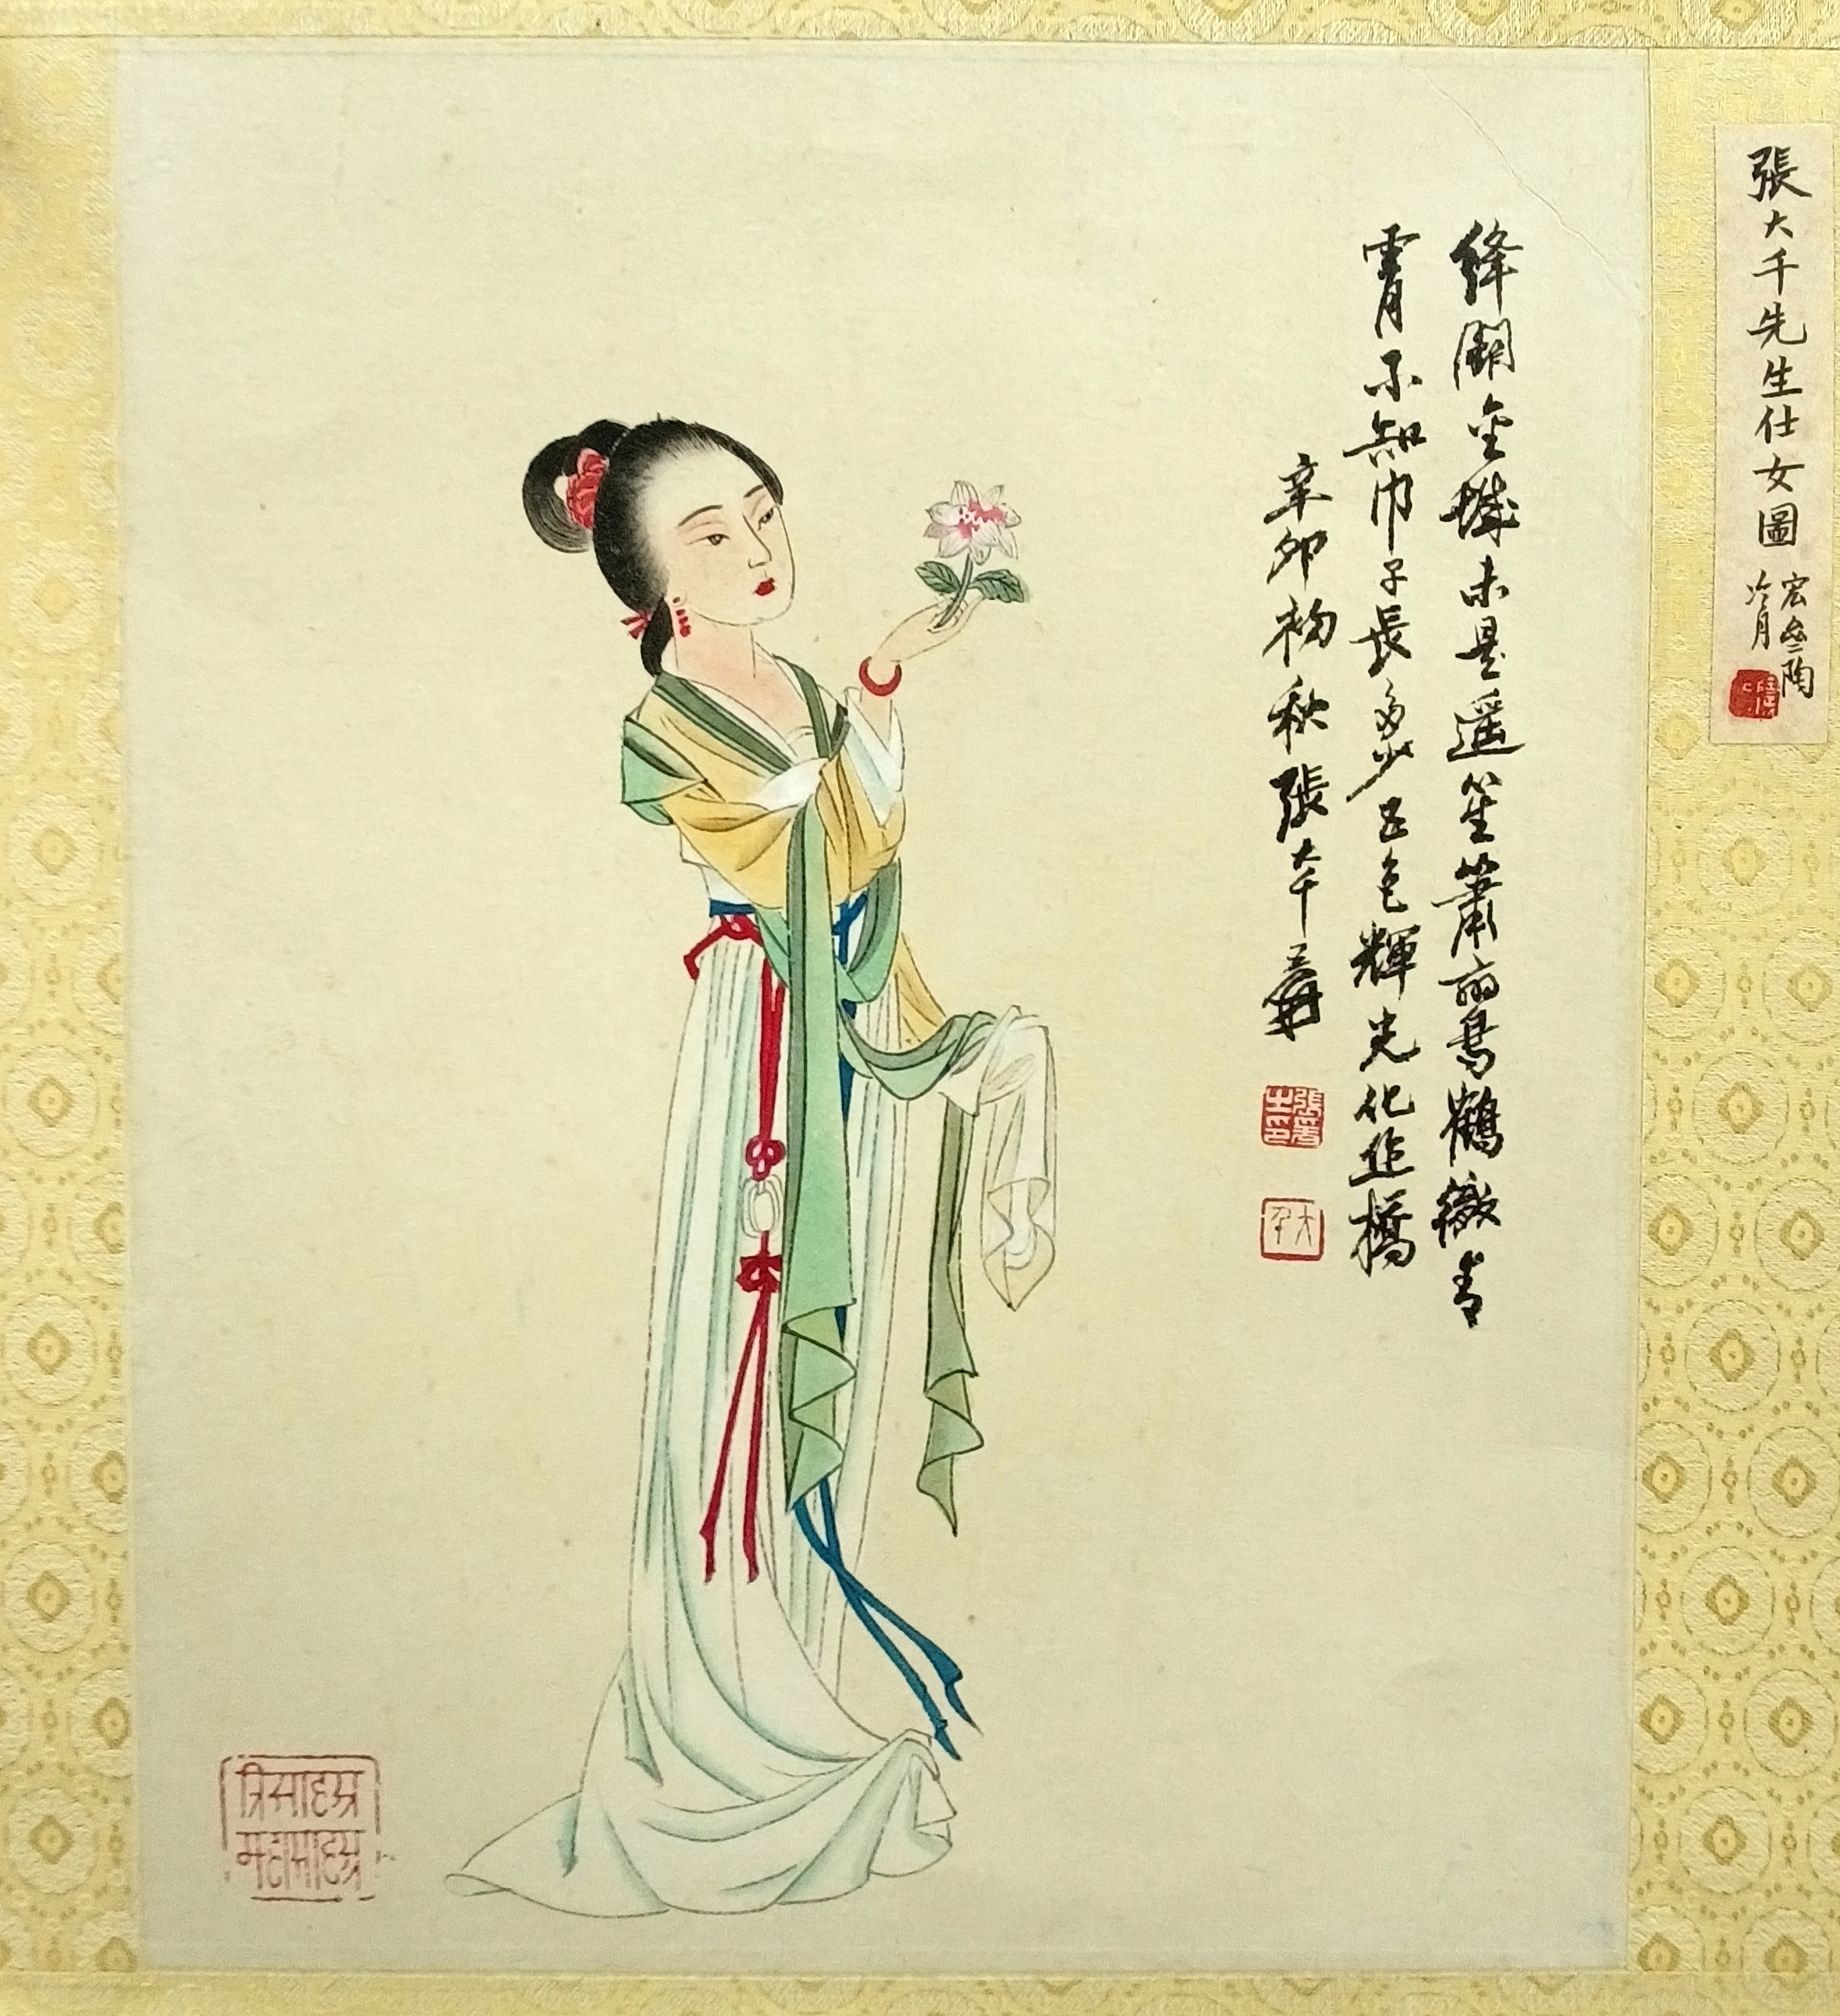 張大千先生仕女圖
宏叁陶
冷月
絳闕金城未是遥笙簫鸞鶴徹青
霄不知巾子長多少五色輝光化作橋
辛卯初秋張大千爰
張爰
之印
大千
त्रिसाहस्र
महासाहस्र